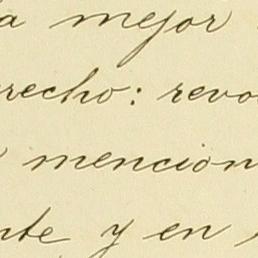 a mejor
recho: revo
mencion
nte y en